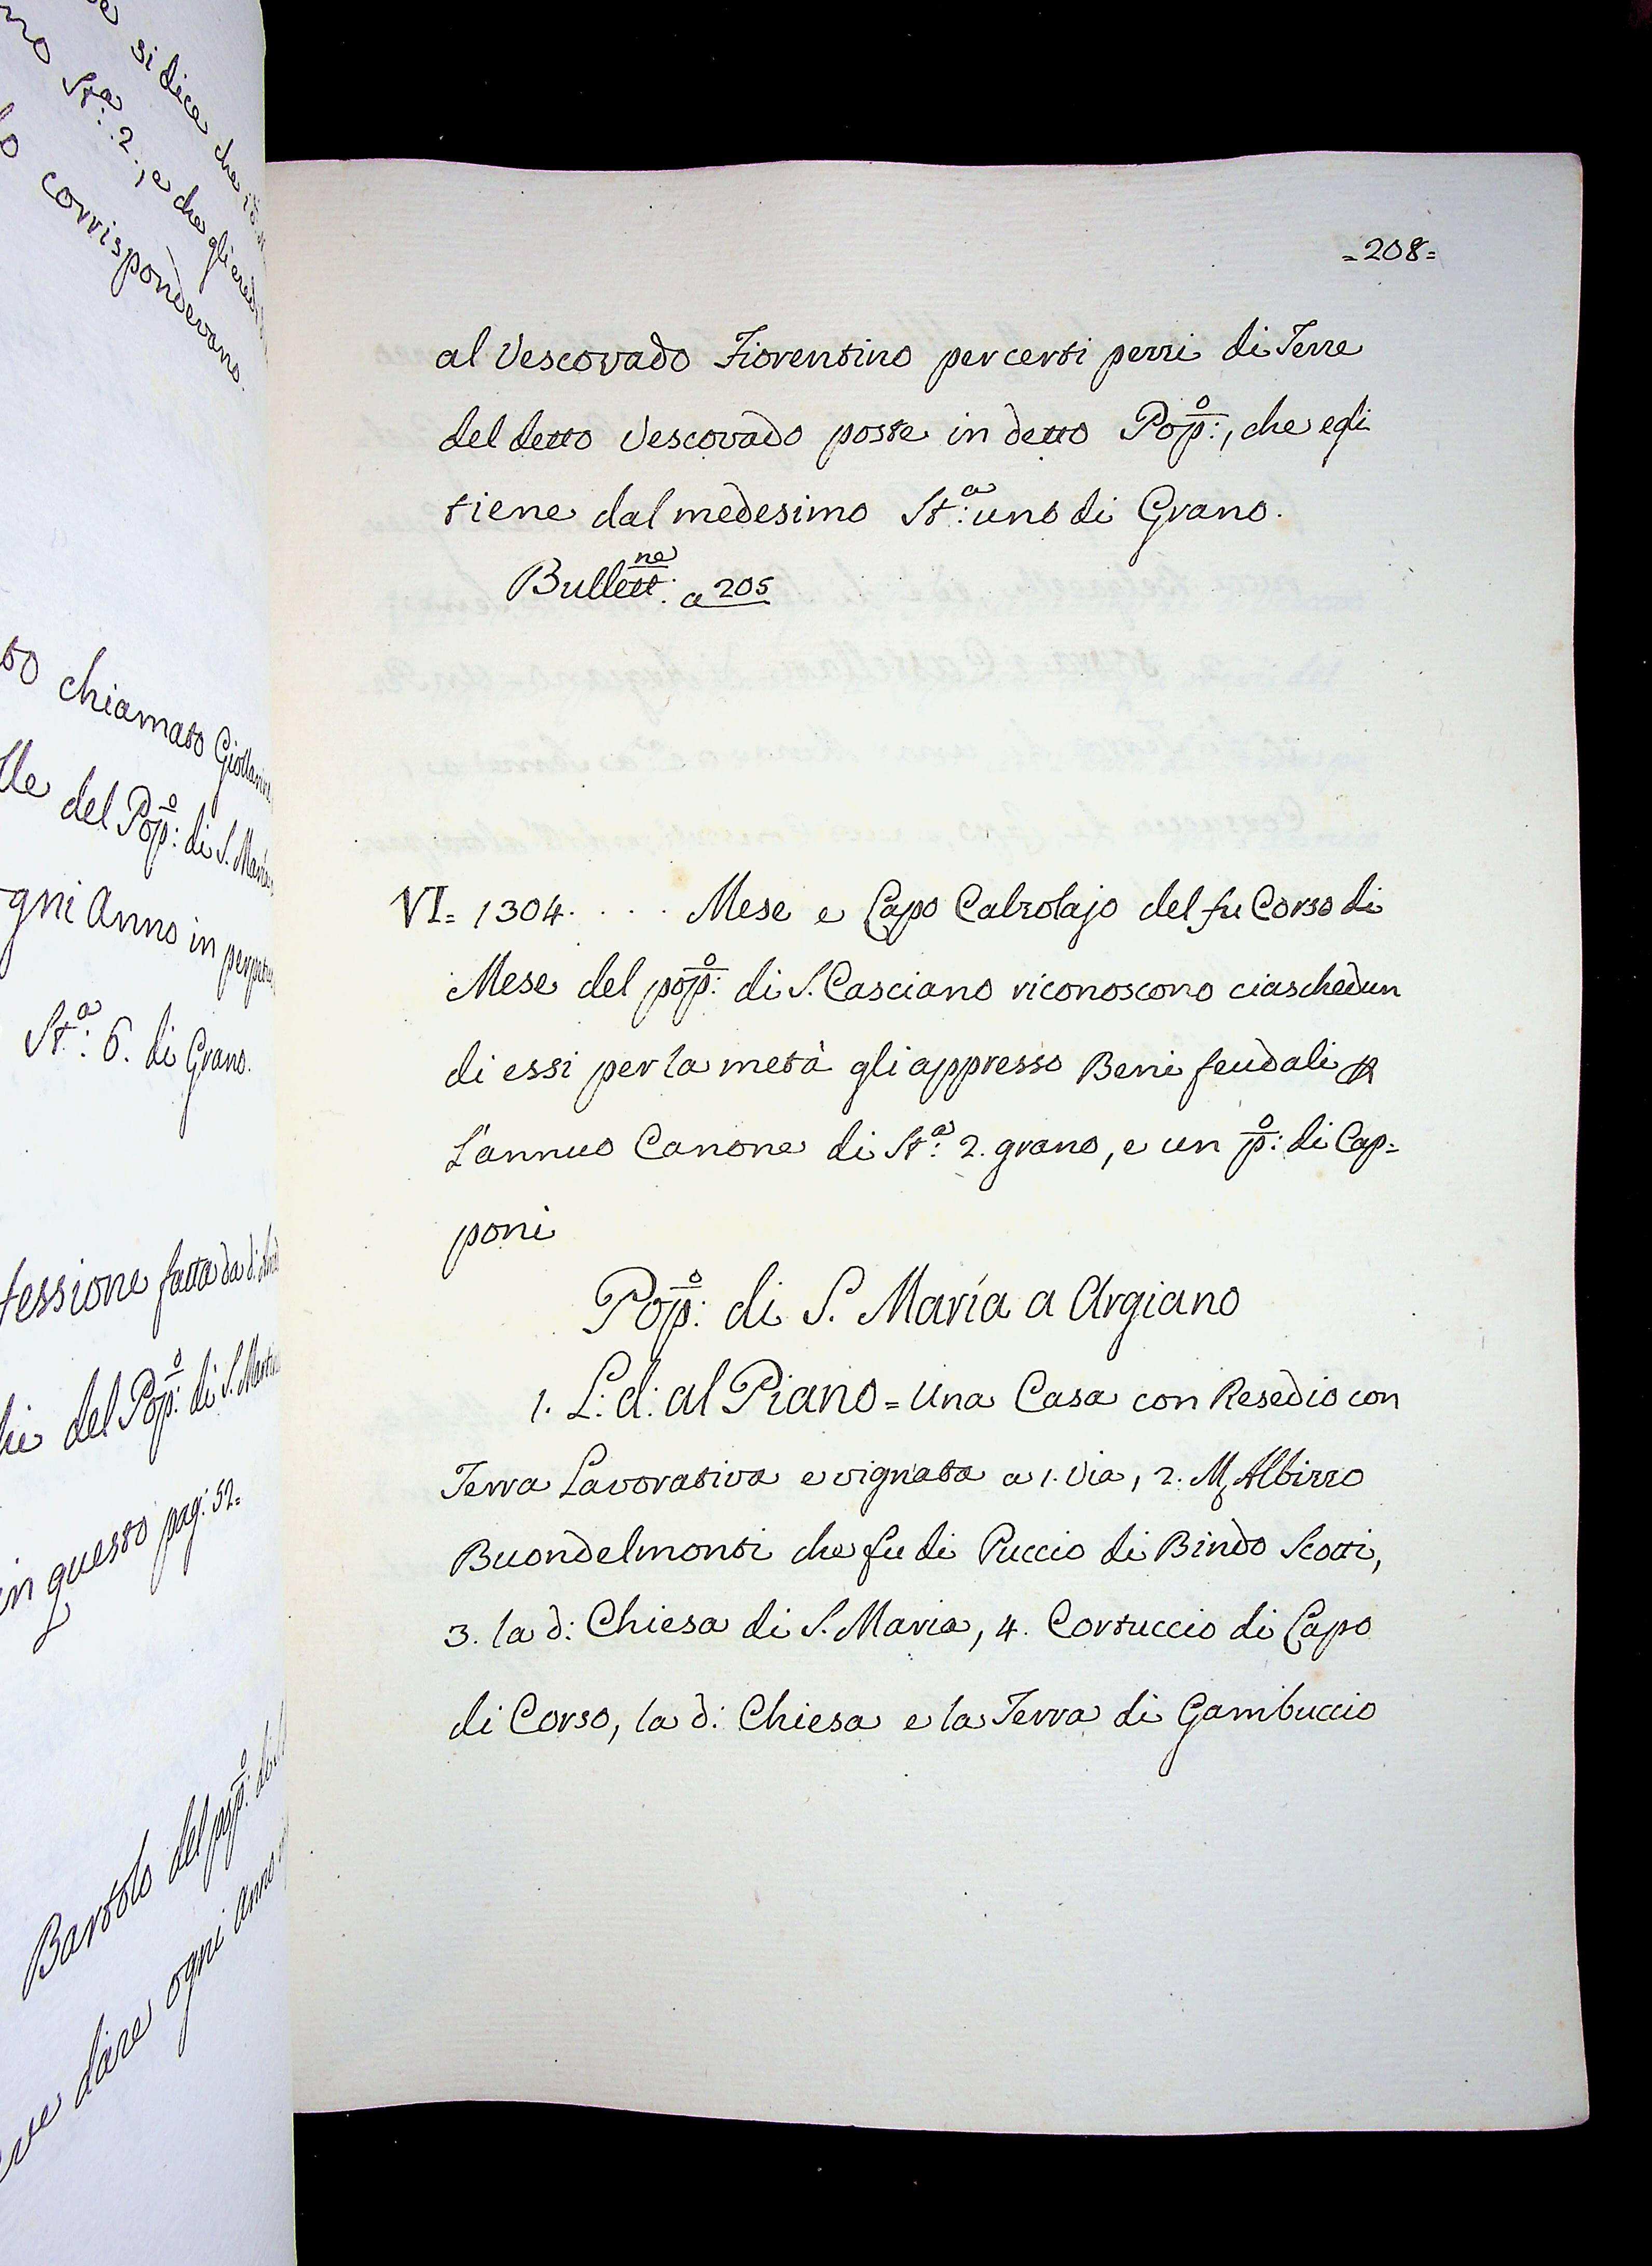 si dice che
St.a 2., e che gli
corrispondevano.
chiamato
del Pop.o: di S.
ogni Anno in
St.a: 6. di Grano.
fatta da
del Pop.o: di S.
in questo pag: 52=
Bartolo del pop.o: di
dare ogni Anno
=208=
al Vescovado Fiorentino per certi pezzi di Terre
del detto Vescovado poste in detto Pop.o:, che egli
tiene dal medesimo St.a: uno di Grano.
Bullett.ne: a 205
VI= 1304. . . . . Mese e Capo Calzolajo del fu Corso di
Mese del pop.o: di S. Casciano riconoscono ciaschedun
di essi per la metà gli appresso Beni feudali p
l'annuo Canone di St.a: 2. grano, e un p.o: di Cap=
poni
Pop.o: di S. Maria a Argiano
1. L: d: al Piano = una Casa con Resedio con
Terra Lavorativa e vignata a 1. Via, 2. M. Albizzo
Buondelmonti che fu di Puccio di Bindo Scotti,
3. la d: Chiesa di S. Maria, 4. Cortuccio di Capo
di Corso, la d: Chiesa e la Terra di Gambuccio